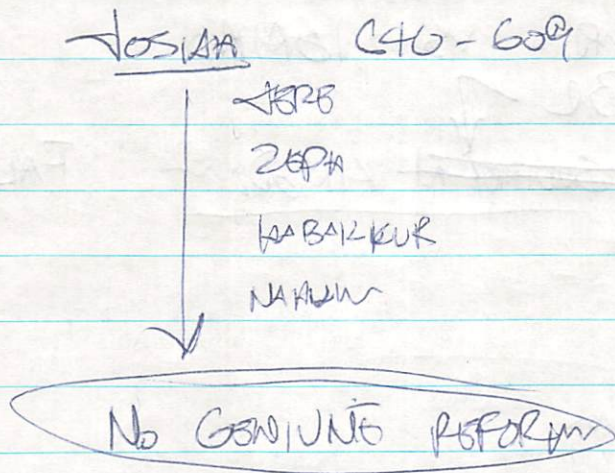 JOSIAH 640-609
JERE
ZEPH
HABAKKUK
NAHUM
NO GENIUNE REFORM